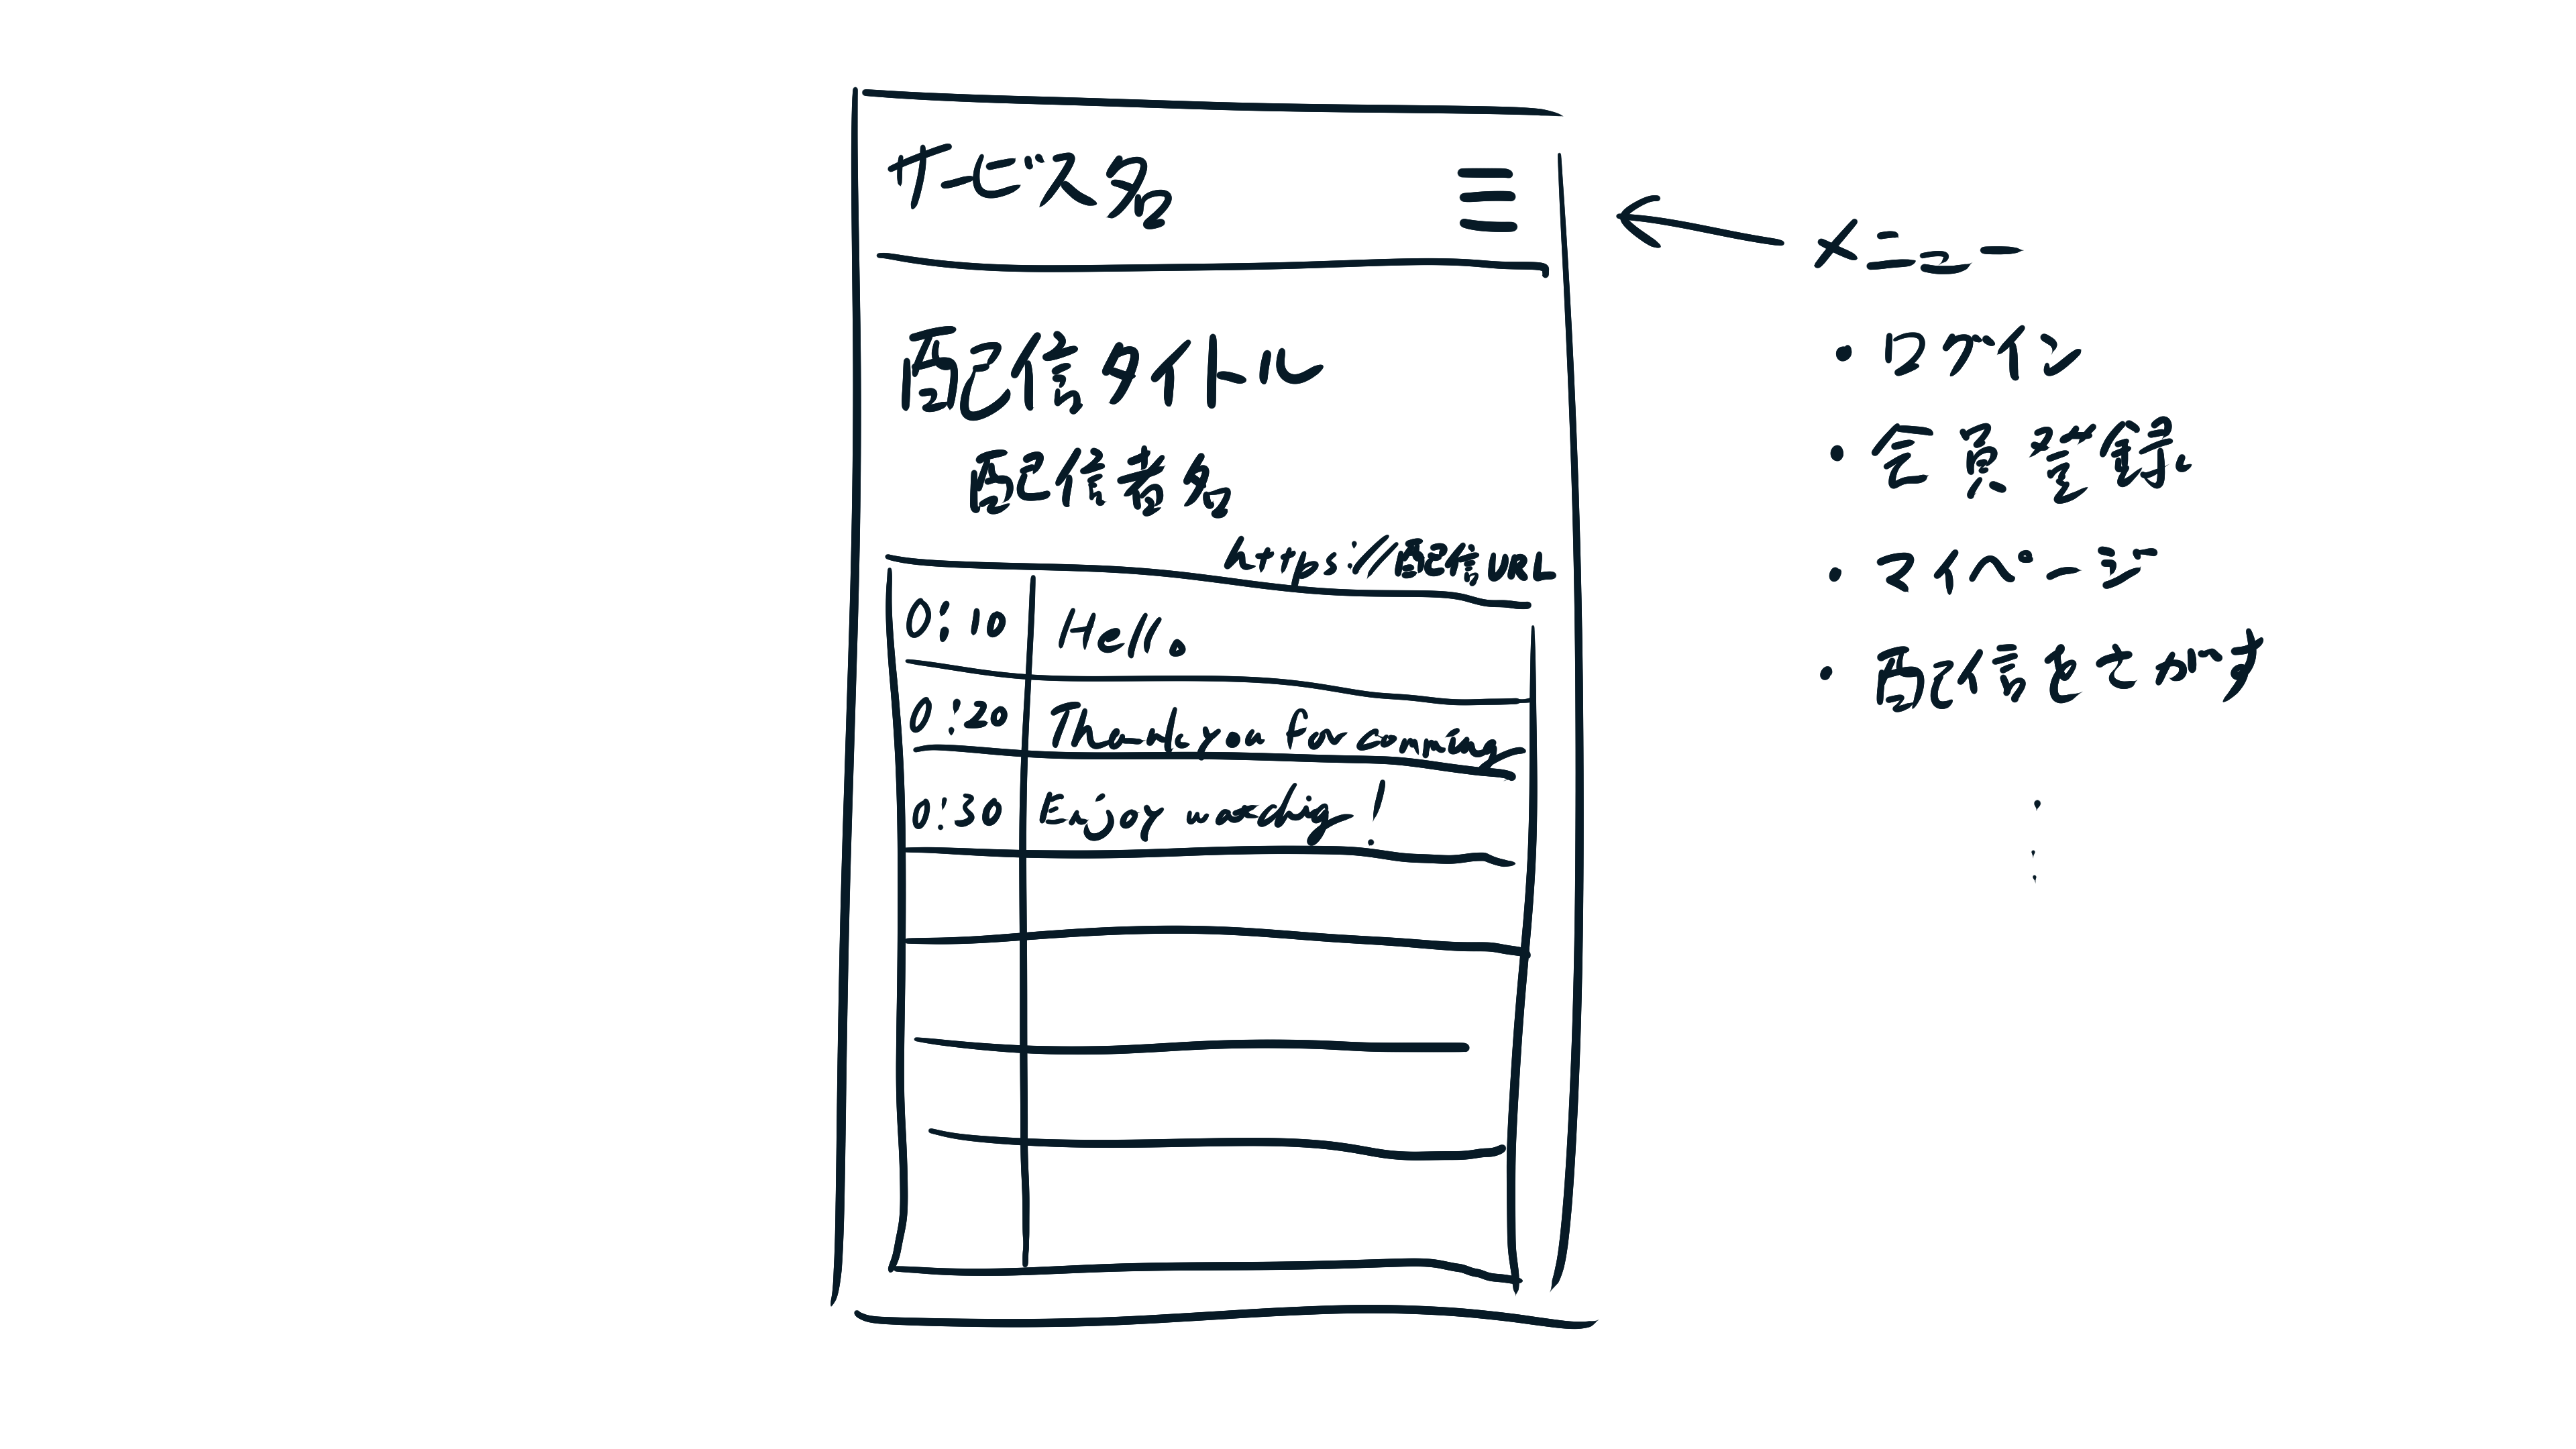 サービス名
配信タイトル
配信者名
https://配信URL
0:10 Hello
0:20 Thank you for comming
0:30 Enjoy watchig!
メニュー
・ログイン
・会員登録
・マイページ
・配信をさがす